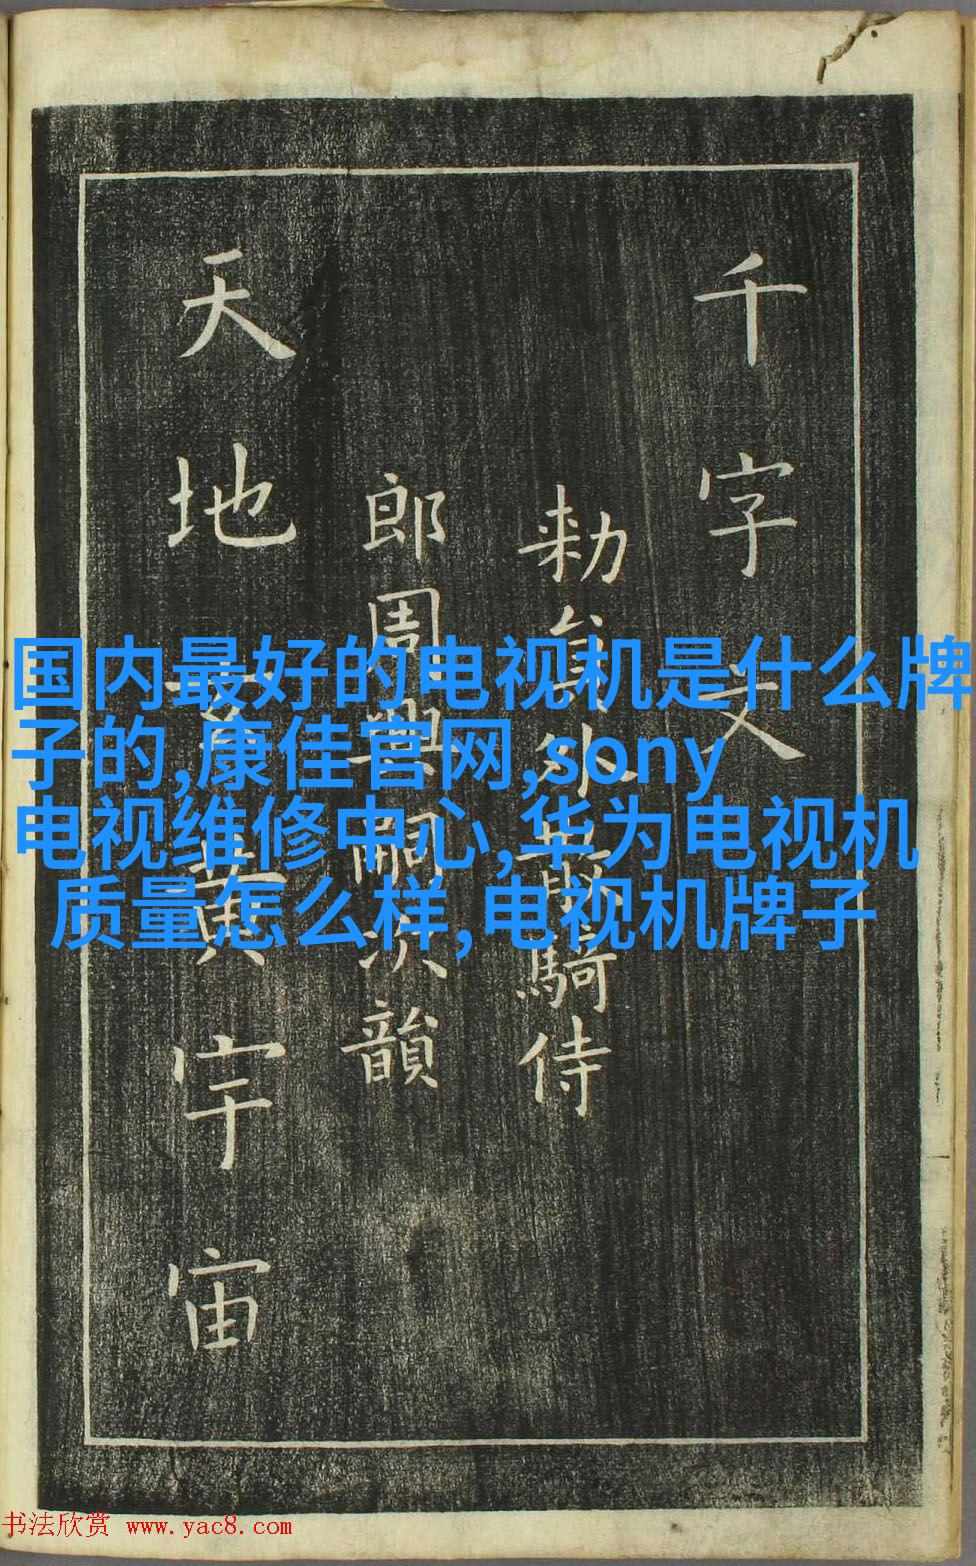 千字文
勑負外散騎侍
郎周興嗣次韻
天地玄黄宇宙
国内最好的电视机是什么牌
子的,康佳官网,sony
电视维修中心,华为电视机
质量怎么样,电视机牌子
书法欣赏 www.yac8.com